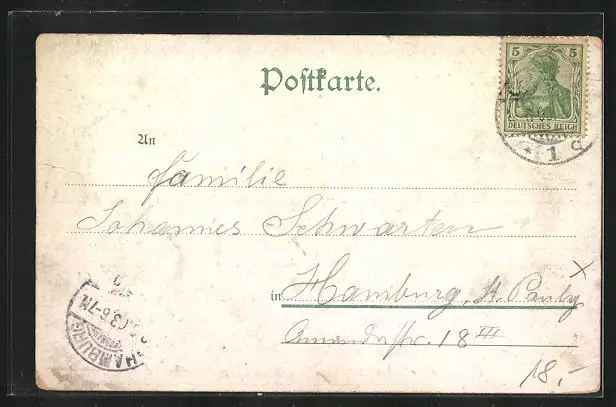 Postkarte.
5 5
DEUTSCHES REICH
* 1 d
An
Familie
Johannes Schwarten
in Hamburg, St. Pauly
Amandastr. 18 III
HAMBURG
03.6-7N
18,-